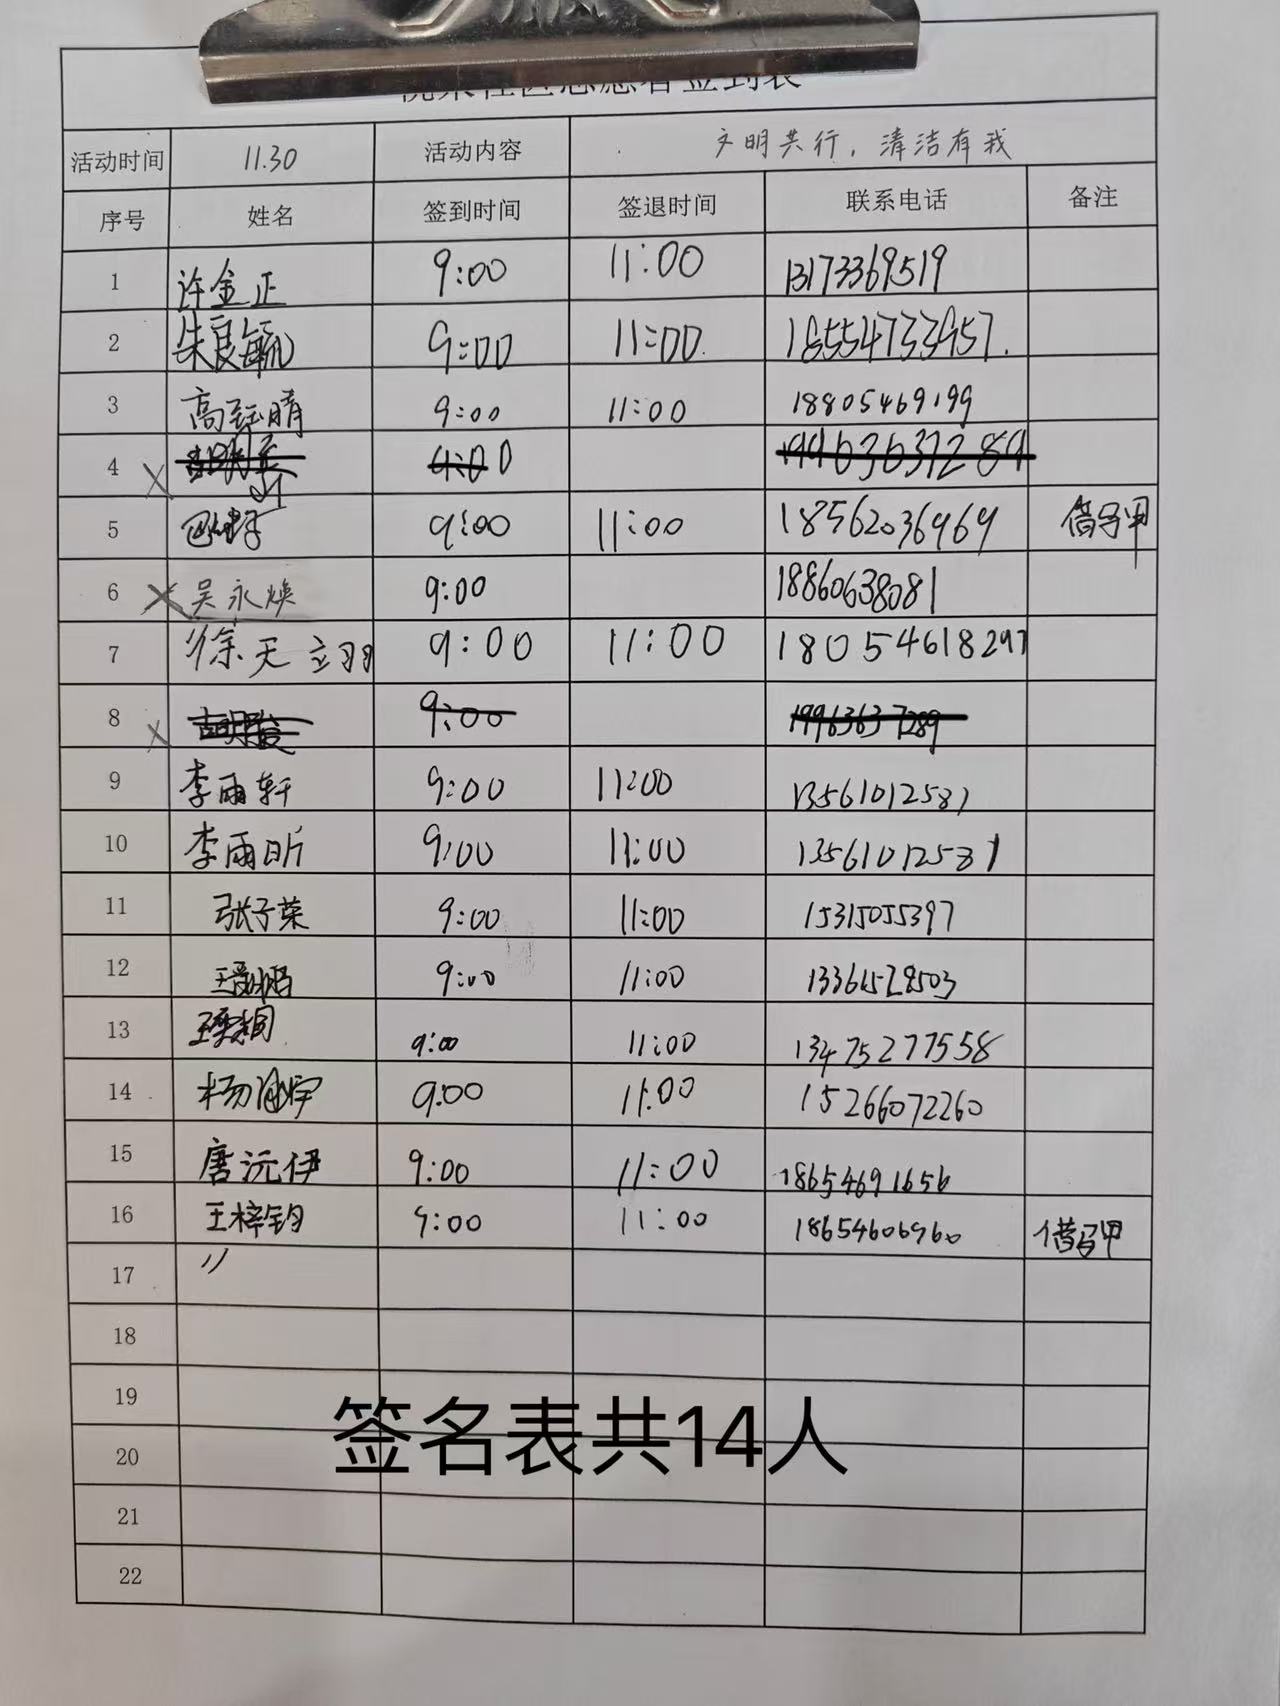 社区志愿者签到表
活动时间 11.30 活动内容 文明共行，清洁有我
序号 姓名 签到时间 签退时间 联系电话 备注
1 许金正 9:00 11:00 13173369519
2 朱良毓 9:00 11:00 18554733957.
3 高钰晴 9:00 11:00 18805469199
4 9:00 19963637289
5 9:00 11:00 18562036969 借马甲
6 吴永焕 9:00 18860638081
7 徐天翊 9:00 11:00 18054618297
8 9:00 19963637289
9 李雨轩 9:00 11:00 13561012581
10 李雨昕 9:00 11:00 13561012581
11 张子荣 9:00 11:00 15315055397
12 9:00 11:00 13361528503
13 9:00 11:00 13475277558
14 杨 宇 9:00 11:00 15266072260
15 唐沅伊 9:00 11:00 18654691656
16 王梓钧 9:00 11:00 18654606960 借马甲
17
18
19
签名表共14人
20
21
22